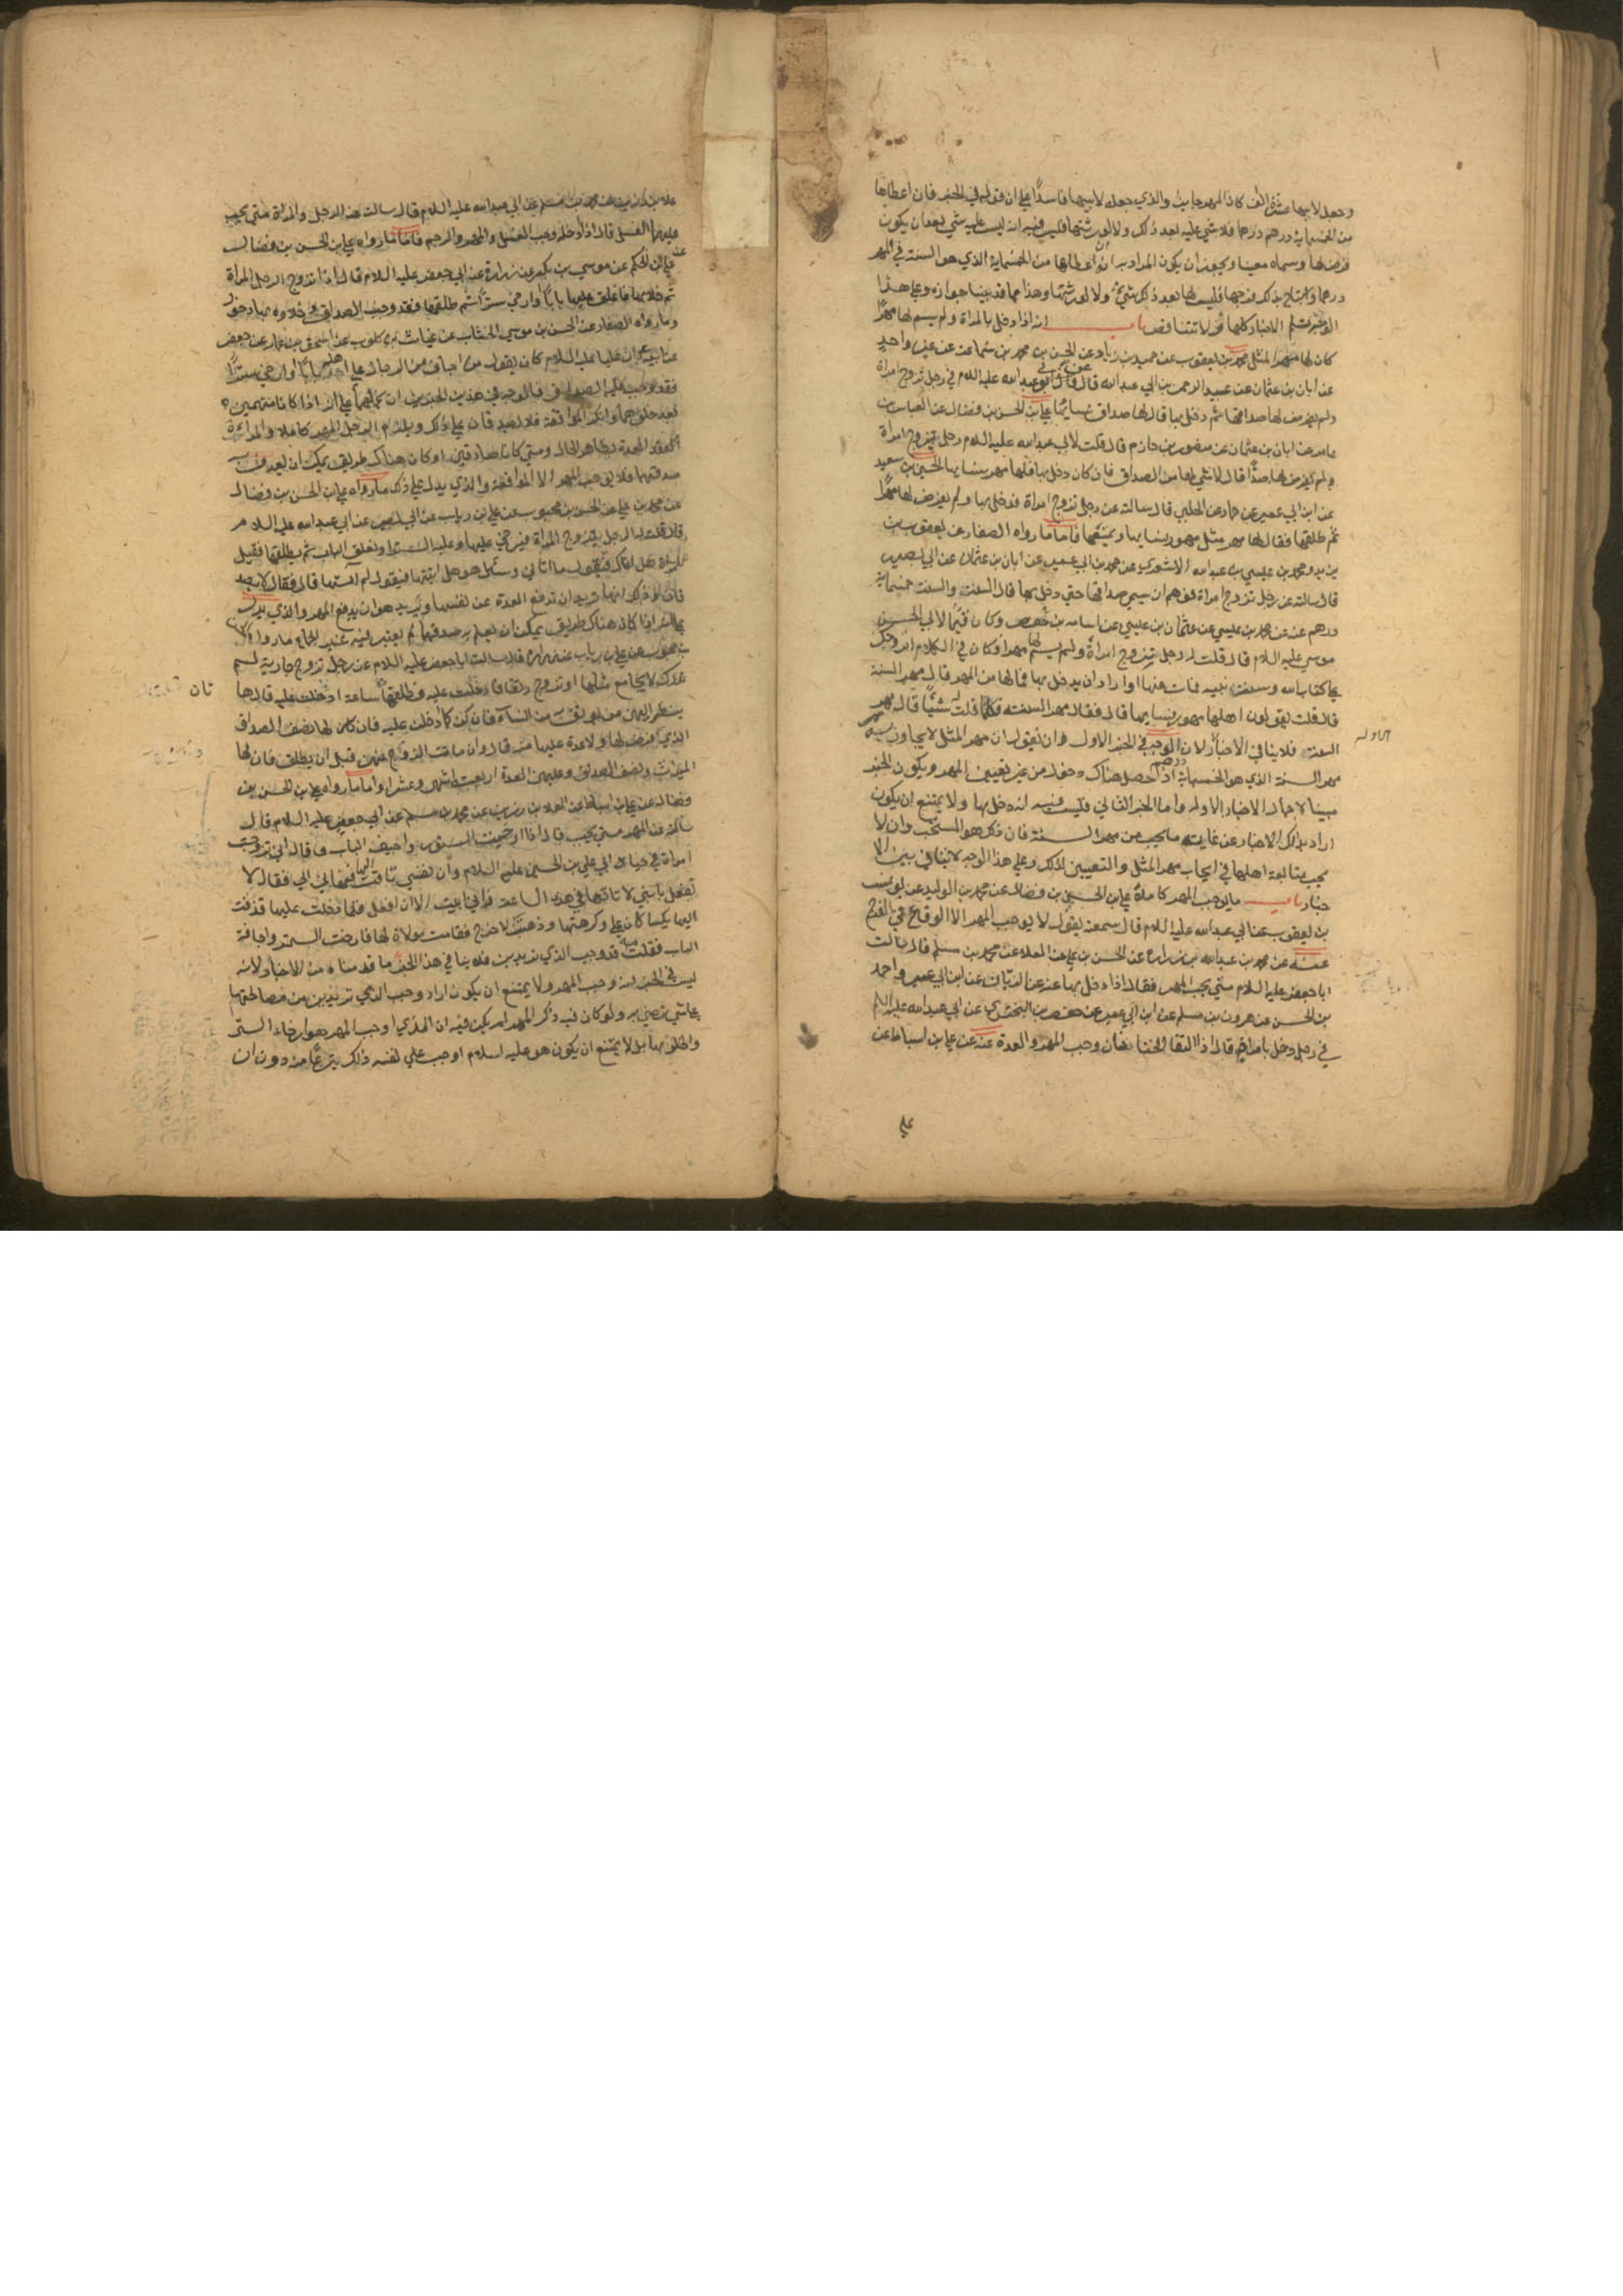 وجعل لابيها عشرة الف كان المهر جايزا والذي جعله لابيها فاسدا على ان قوله في الخبر فان اعطاها
من الخمسماية درهم درهما فلا شي عليه بعد ذلك ولا لورثتها فليس فيه انه ليس عليه شي بعد ان يكون
فرض لها وسماه معينا ويجوز ان يكون المراد به انه اعطاها من الخمسماية الذي هو السنة في المهر
درهما واستباح بذلك فرجها فليس لها بعد ذلك شي ولا لورثتها وهذا مما قد بينا جوازه وعلى هذا
الوجه تسلم الاخبار كلها ولا تتناقض باب انه اذا دخل بالمراة ولم يسم لها مهرا
كان لها مهر المثل محمد بن يعقوب عن حميد بن زياد عن الحسن بن محمد بن سماعة عن غير واحد
عن ابان بن عثمان عن عبد الرحمن بن ابي عبد الله قال قال ابو عبد الله عليه السلام في رجل تزوج امراة
ولم يفرض لها صداقها ثم دخل بها قال لها صداق نسايها علي بن الحسن بن فضال عن العباس بن
عامر عن ابان بن عثمان عن منصور بن حازم قال قلت لابي عبد الله عليه السلام رجل تزوج امراة
ولم يفرض لها صداقا قال لا شي لها من الصداق فان كان دخل بها فلها مهر نسايها الحسين بن سعيد
عن ابن ابي عمير عن حماد عن الحلبي قال سالته عن رجل تزوج امراة فدخل بها ولم يفرض لها مهرا
ثم طلقها فقال لها مهر مثل مهور نسايها ويمتعها فاما ما رواه الصفار عن يعقوب بن
يزيد ومحمد بن عيسي بن عبد الله الاشعري عن محمد بن ابي عمير عن ابان بن عثمان عن ابي بصير
قال سالته عن رجل تزوج امراة فوهم ان يسمي صداقها حتى دخل بها قال السنة والسنة خمسماية
درهم عنه عن محمد بن عيسي عن عثمان بن عيسي عن اسامه بن حفص وكان قيما لابي الحسن
موسي عليه السلام قال قلت له رجل يتزوج امراة ولم يسم لها مهرا وكان في الكلام اتزوجك
على كتاب الله وسنة نبيه فمات عنها او اراد ان يدخل بها فما لها من المهر قال مهر السنة
قال قلت يقولون اهلها مهور نسايها قال فقال مهر السنة وكلما قلت له شيئا قال مهر
السنة فلا ينافي الاخبار الاوله لان الوجه في الخبر الاول هو ان نقول ان مهر المثل لا يجاوز به
مهر السنة الذي هو الخمسماية درهم اذا حصل هناك دخول من غير تعيين المهر ويكون الخبر
مبينا لاجمال الاخبار الاوله واما الخبر الثاني فليس فيه انه دخل بها ولا يمتنع ان يكون
اراد بذلك الاخبار عن غاية ما يجب من مهر السنة فان ذلك هو المستحب وان لا
يجب متابعة اهلها في ايجاب مهر المثل والتعيين لذلك وعلى هذا الوجه لا تنافي بين الا
خبار باب ما يوجب المهر كاملا علي بن الحسن بن فضال عن محمد بن الوليد عن يونس
بن يعقوب عن ابي عبد الله عليه السلام قال سمعته يقول لا يوجب المهر الا الوقاع في الفرج
عنه عن محمد بن عبد الله بن زراره عن الحسن بن علي عن العلا عن محمد بن مسلم قال سالت
ابا جعفر عليه السلام متى يجب المهر فقال اذا دخل بها عنه عن الزيات عن ابن ابي عمير واحمد
بن الحسن عن هرون بن مسلم عن ابن ابي عمير عن حفص بن البختري عن ابي عبد الله عليه السلام
في رجل دخل بامراة قال اذا التقا الختانان وجب المهر والعدة عنه عن علي بن اسباط عن
علا بن رزين عن محمد بن مسلم عن ابي عبد الله عليه السلام قال سالت عن الرجل والمراة متى يجب
عليهما الغسل قال اذا ادخله وجب الغسل والمهر والرجم فاما ما رواه علي بن الحسن بن فضال
عن علي بن الحكم عن موسي بن بكير عن زرارة عن ابي جعفر عليه السلام قال اذا تزوج الرجل المراة
ثم خلا بها فاغلق عليها بابا او ارخى سترا ثم طلقها فقد وجب الصداق وخلاوه بها دخول
وما رواه الصفار عن الحسن بن موسي الخشاب عن غياث بن كلوب عن اسحق بن عمار عن جعفر
عن ابيه ان عليا عليه السلام كان يقول من اجاف من الرجال على اهله بابا او ارخى سترا
فقد وجب عليه الصداق فالوجه في هذين الخبرين ان نحملهما على انه اذا كانا متهمين
بعد خلوهما وانكر المواقعة فلا يصدقان على ذلك ويلزم الرجل المهر كاملا والمراة
العدة بظاهر الحال ومتى كانا صادقين او كان هناك طريق يمكن ان يعرف
صدقهما فلا يوجب المهر الا المواقعة والذي يدل على ذلك ما رواه علي بن الحسن بن فضال
عن محمد بن علي عن الحسن بن محبوب عن علي بن رياب عن ابي بصير عن ابي عبد الله عليه السلام
قال قلت له الرجل يتزوج المراة فيرخي عليها وعليه الستر او يغلق الباب ثم يطلقها فقيل
للمراة هل اتاك فتقول ما اتاني وسئل هو هل اتيتها فيقول لم آتيها قال فقال لا يصد
قان وذلك انها تريد ان تدفع العدة عن نفسها ويريد هو ان يدفع المهر والذي يدل
على انه اذا كان هناك طريق يمكن ان يعلم به صدقهما لم يعتبر فيه غير الجماع ما رواه الحسن
بن محبوب عن علي بن رياب عن زراره قال سالت ابا جعفر عليه السلام عن رجل تزوج جارية لم
تدرك لا يجامع مثلها او تزوج رتقا فادخلت عليه فطلقها ساعة ادخلت عليه قال هاتان
ينظر اليهن من يوثق به من النساء فان كن كما دخلت عليه فان لها نصف الصداق
الذي فرض لها ولا عدة عليها منه قال وان مات الزوج عنهن قبل ان يطلق فان لها
الميراث ونصف الصداق وعليهن العدة اربعة اشهر وعشرا واما ما رواه علي بن الحسن بن
فضال عن علي بن اسباط عن العلا بن رزين عن محمد بن مسلم عن ابي جعفر عليه السلام قال
سالته عن المهر متى يجب قال اذا ارخيت الستور واجيف الباب وقال اني تزوجت
امراة في حياة ابي علي بن الحسين عليهم السلام وان نفسي تاقت اليها فنهاني ابي فقال لا
تفعل يا بني لا تاتها في هذه الساعة واني ابيت الا ان افعل فلما دخلت عليها قذفت
اليها بكسا كان علي وكرهتها وذهبت لاخرج فقامت مولاة لها فارخت الستر واجافت
الباب فقلت مه قد وجب الذي تريدين فلا ينافي هذا الخبر ما قدمناه من الاخبار لانه
ليس في الخبر انه وجب المهر ولا يمتنع ان يكون اراد وجب الذي تريدين من مصالحتها
على شي ترضي به ولو كان فيه ذكر المهر لم يكن فيه ان الذي اوجب المهر هو ارخاء الستر
والخلو بها بل لا يمتنع ان يكون هو عليه السلام اوجب على نفسه ذلك تبرعا منه دون ان